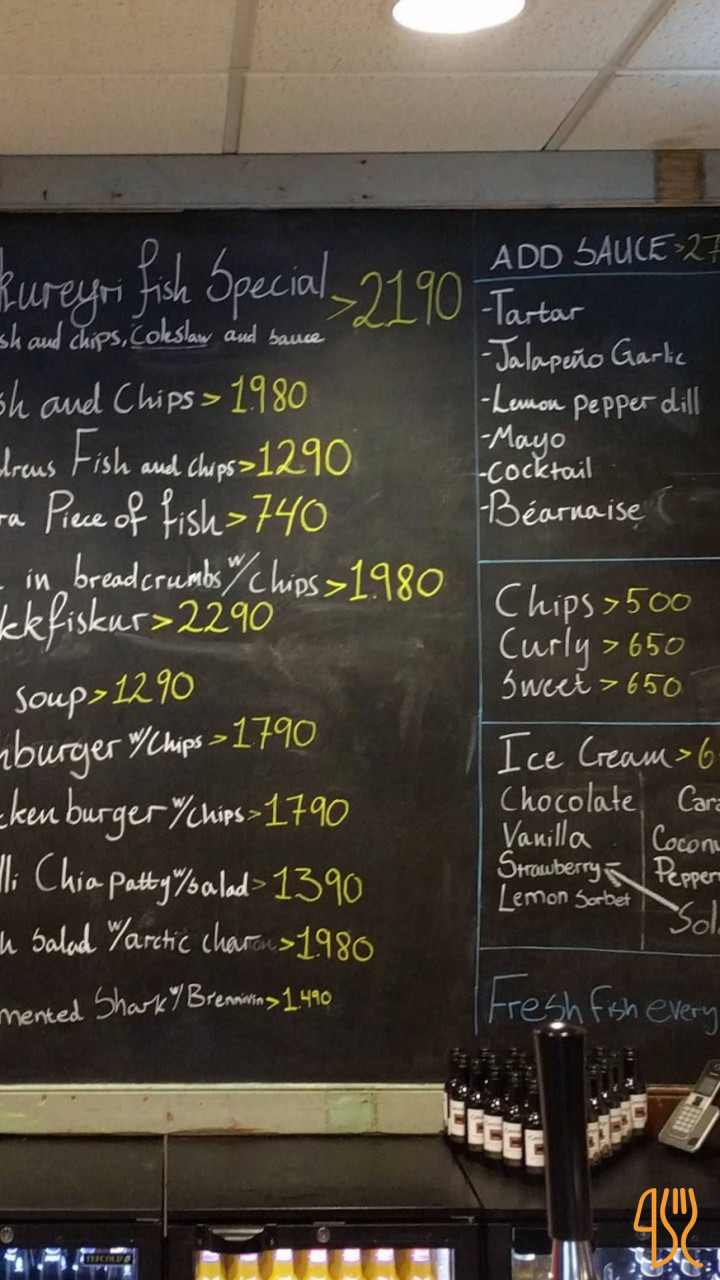 kureyri fish Special >2190
sh and chips, Coleslaw and sauce
sh and Chips > 1980
dreus Fish and chips >1290
ra Piece of fish >740
in breadcrumbs w/ chips >1980
kkfiskur >2290
soup >1290
hburger w/ Chips >1790
cken burger w/ chips >1790
lli Chia Patty w/ salad >1390
h Salad w/ arctic char >1980
mented Shark w/ Brennivin >1.490
ADD SAUCE >27
-Tartar
-Jalapeño Garlic
-Lemon pepper dill
-Mayo
-cocktail
-Béarnaise
Chips >500
Curly >650
Sweet >650
Ice Cream >6
Chocolate
Vanilla
Strawberry
Lemon Sorbet
Cara
Coconu
Pepper
Sol
Fresh fish every